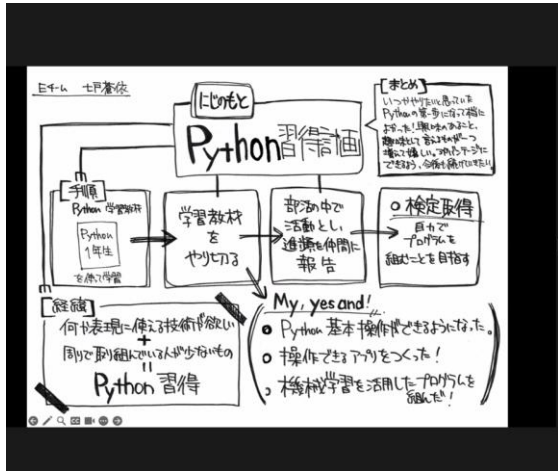 Eチーム 七戸蒼依
にじのもと
Python習得計画
【まとめ】
いつかやりたいと思っていた
Pythonの第一歩になって
よかった!興味のあること、
趣味として言えるものが一つ
増えて嬉しい。
できるよう、今後も続けていきたい。
【手順】
Python 学習教材
Python
1年生
を使って学習
学習教材
を
やり切る
部活の中で
活動とし
進捗を仲間に
報告
○検定取得
自力で
プログラムを
組むことを目指す
【経緯】
何か表現に使える技術が欲しい
+
周りで取り組んでいる人が少ないもの
=
Python 習得
My, yes and!
Python 基本操作ができるようになった。
操作できるアプリをつくった!
機械学習を活用したプログラムを
組んだ!